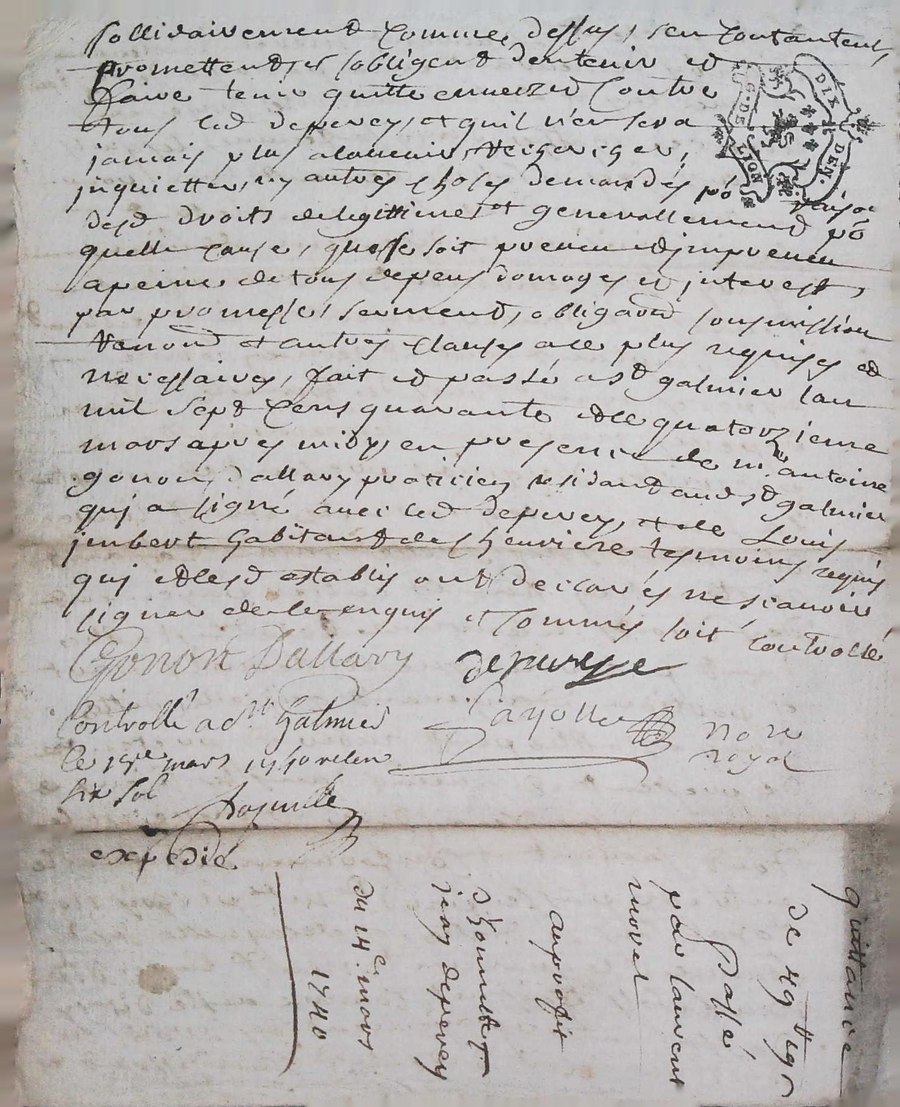 sollidairement comme dessus, sen contantent,
promettent et sobligent dentenir et
faire tenir quitte envers et contre
tous led deperey, et quil n'en sera
jamais plus a lavenir recherché,
inquietter, ny autres choses demandés pō raison
desd droits de legittimes et generallement pō
quelle cause, que se soit preveu et impreveu
a peine de tous depens domages et interest,
par promesse, serment, obligaōn soumission
renonōn et autres clauses a ce plus requises et
necessaires, fait et passé a st galmier lan
mil sept cens quarante et le quatorzieme
mars apres midy en presence de me antoine
gonon dallary praticien residant aud st galmier
qui a signé avec led deperey, et de Louis
imbert habitant de chevriere tesmoins requis
qui et lesd establis ont declarés ne scavoir
signer de ce enquis et sommés soit controllé
Gonon Dallary deperey
Controllé a st Galmier
le 15e mars 1740 recu
six sol
Fayolle
nore
royal
expedié
G. DE LION
DIX DEN.
quittance
de 49 tt 19 s
Passé
par laurent
morel
auproffit
d'honneste
jean deperey
du 14e mars
1740